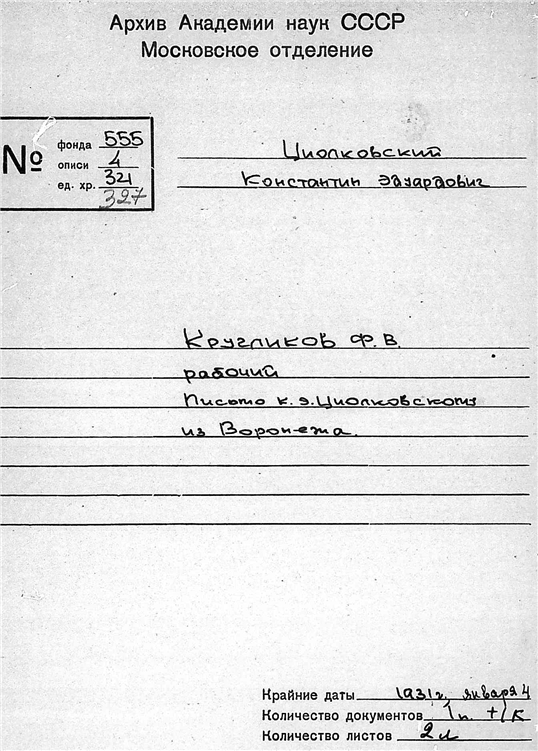 Архив Академии наук СССР
Московское отделение
№
фонда 555
описи 4
ед. хр. 321
327
Циолковский
Константин Эдуардович
Кругликов Ф.В.
рабочий
Письмо К.Э.Циолковскому
из Воронежа.
Крайние даты 1931г. января 4
Количество документов 1п. +1к
Количество листов 2л